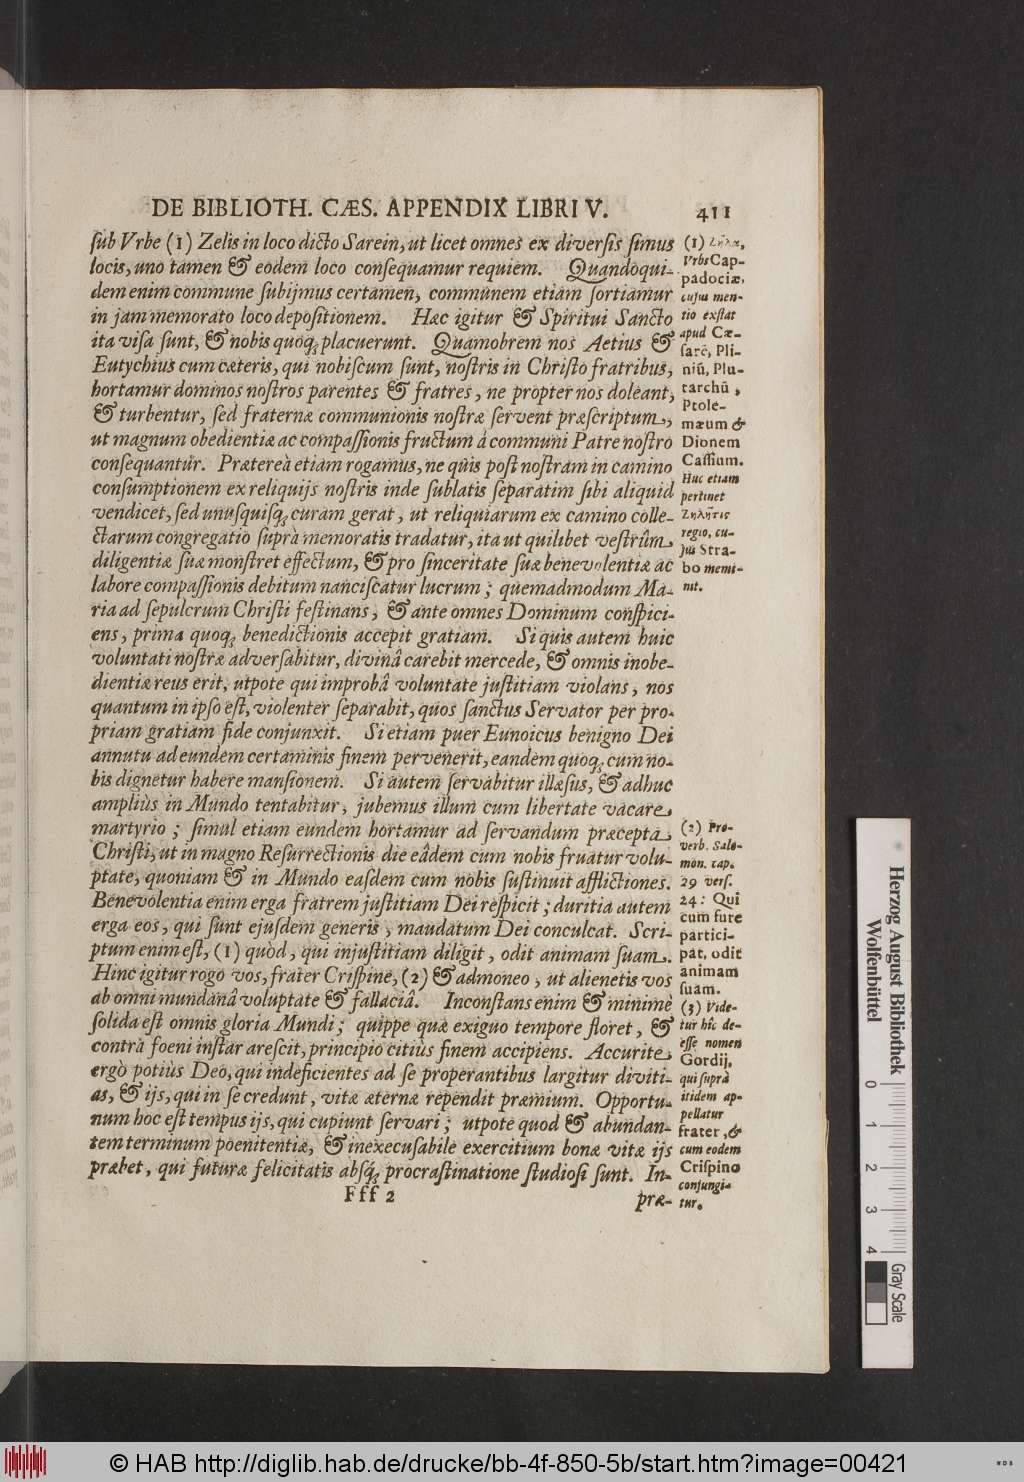 DE BIBLIOTH. CÆS. APPENDIX LIBRI V. 411
ſub Vrbe (1) Zelis in loco dicto Sarein, ut licet omnes ex diverſis ſimus
locis, uno tamen & eodem loco conſequamur requiem. Quandoqui-
dem enim commune ſubijmus certamen, communem etiam ſortiamur
in jam memorato loco depoſitionem. Hæc igitur & Spiritui Sancto
ita viſa ſunt, & nobis quoq; placuerunt. Quamobrem nos Aetius &
Eutychius cum cæteris, qui nobiſcum ſunt, noſtris in Chriſto fratribus,
hortamur dominos noſtros parentes & fratres, ne propter nos doleant,
& turbentur, ſed fraternæ communionis noſtræ ſervent præſcriptum,
ut magnum obedientiæ ac compaſſionis fructum á communi Patre noſtro
conſequantur. Prætereà etiam rogamus, ne quis poſt noſtram in camino
conſumptionem ex reliquijs noſtris inde ſublatis ſeparatim ſibi aliquid
vendicet, ſed unuſquiſq; curam gerat, ut reliquiarum ex camino colle-
ctarum congregatio ſuprà memoratis tradatur, ita ut quilibet veſtrûm
diligentiæ ſuæ monſtret effectum, & pro ſinceritate ſuæ benevolentiæ ac
labore compaſſionis debitum nanciſcatur lucrum; quemadmodum Ma-
ria ad ſepulcrum Chriſti feſtinans, & ante omnes Dominum conſpici-
ens, prima quoq; benedictionis accepit gratiam. Si quis autem huic
voluntati noſtræ adverſabitur, divinâ carebit mercede, & omnis inobe-
dientiæ reus erit, utpote qui improbâ voluntate juſtitiam violans, nos
quantum in ipſo eſt, violenter ſeparabit, quos ſanctus Servator per pro-
priam gratiam fide conjunxit. Si etiam puer Eunoicus benigno Dei
annutu ad eundem certaminis finem pervenerit, eandem quoq; cum no-
bis dignetur habere manſionem. Si autem ſervabitur illæſus, & adhuc
ampliùs in Mundo tentabitur, jubemus illum cum libertate vacare
martyrio; ſimul etiam eundem hortamur ad ſervandum præcepta
Chriſti, ut in magno Reſurrectionis die eâdem cum nobis fruatur volu-
ptate, quoniam & in Mundo eaſdem cum nobis ſuſtinuit afflictiones.
Benevolentia enim erga fratrem juſtitiam Dei reſpicit; duritia autem
erga eos, qui ſunt ejuſdem generis, maudatum Dei conculcat. Scri-
ptum enim eſt, (1) quòd, qui injuſtitiam diligit, odit animam ſuam.
Hinc igitur rogo vos, frater Criſpine, (2) & admoneo, ut alienetis vos
ab omni mundanâ voluptate & fallaciâ. Inconſtans enim & minimè
ſolida eſt omnis gloria Mundi; quippe quæ exiguo tempore floret, &
contrà foeni inſtar areſcit, principio citiùs finem accipiens. Accurite
ergò potiùs Deo, qui indeficientes ad ſe properantibus largitur diviti-
as, & ijs, qui in ſe credunt, vitæ æternæ rependit præmium. Opportu-
num hoc eſt tempus ijs, qui cupiunt ſervari; utpote quod & abundan-
tem terminum poenitentiæ, & inexecuſabile exercitium bonæ vitæ ijs
præbet, qui futuræ felicitatis abſq; procraſtinatione ſtudioſi ſunt. In-
Fff 2 præ-
(1) Ζῆλα,
Vrbs Cap-
padociæ,
cujus men-
tio exſtat
apud Cæ-
ſarē, Pli-
niū, Plu-
tarchū,
Ptole-
mæum &
Dionem
Caſſium.
Huc etiam
pertinet
Ζηλῆτις
regio, cu-
jus Stra-
bo memi-
nit.
(2) Pro-
verb. Salo-
mon. cap.
29 verſ.
24: Qui
cum fure
partici-
pat, odit
animam
ſuam.
(3) Vide-
tur hîc de-
eſſe nomen
Gordij,
qui ſuprà
itidem ap-
pellatur
frater, &
cum eodem
Criſpino
conjungi-
tur.
Herzog August Bibliothek
Wolfenbüttel
0 1 2 3 4
Gray Scale
© HAB http://diglib.hab.de/drucke/bb-4f-850-5b/start.htm?image=00421